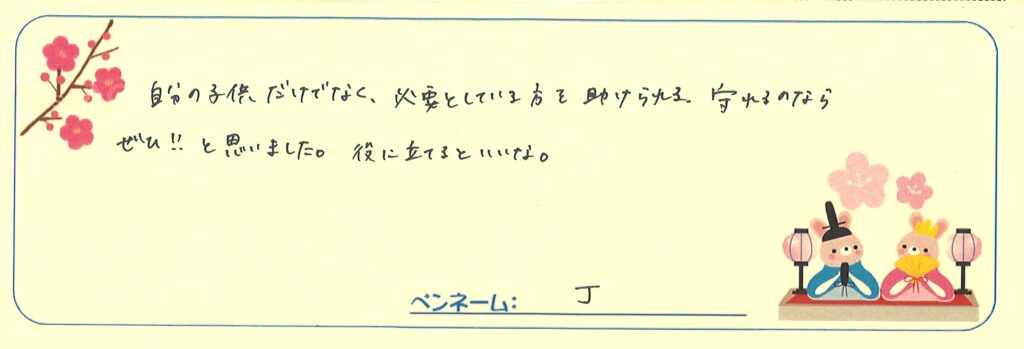 自分の子供だけでなく、必要としている方を助けられる、守れるのなら
ぜひ!!と思いました。役に立てるといいな。
ペンネーム: J